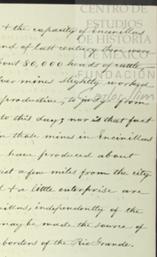 CENTRO DE
ESTUDIOS
DE HISTORIA
DE MÉXICO
FUNDACIÓN
Carlos Slim
& the capacity of Encinillas
end of last century there were
about 80,000 heads of cattle
mines slightly worked
productive, to judge from
to this day; nor is that fact
these mines in Encinillas
have produced about
a few miles from the city
& a little enterprise are
independently of the
may be made the source of
borders of the Rio Grande.